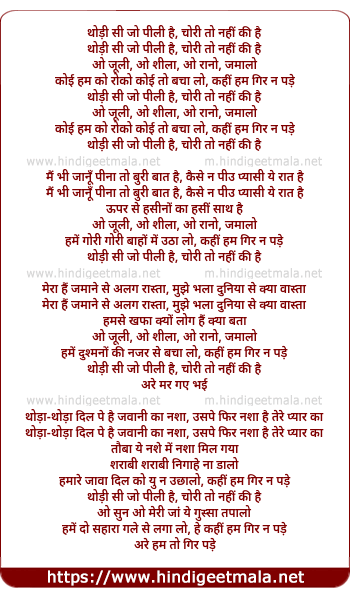 थोड़ी सी जो पीली है, चोरी तो नहीं की है
थोड़ी सी जो पीली है, चोरी तो नहीं की है
ओ जूली, ओ शीला, ओ रानो, जमालो
कोई हम को रोको कोई तो बचा लो, कहीं हम गिर न पड़े
थोड़ी सी जो पीली है, चोरी तो नहीं की है
ओ जूली, ओ शीला, ओ रानो, जमालो
कोई हम को रोको कोई तो बचा लो, कहीं हम गिर न पड़े
थोड़ी सी जो पीली है, चोरी तो नहीं की है
www.hindigeetmala.net m.hindigeetmala.net
मैं भी जानूँ पीना तो बुरी बात है, कैसे न पीउ प्यासी ये रात है
मैं भी जानूँ पीना तो बुरी बात है, कैसे न पीउ प्यासी ये रात है
ऊपर से हसीनों का हसीं साथ है
ओ जूली, ओ शीला, ओ रानो, जमालो
हमें गोरी गोरी बाहों में उठा लो, कहीं हम गिर न पड़े
थोड़ी सी जो पीली है, चोरी तो नहीं की है
www.hindigeetmala.net m.hindigeetmala.net
मेरा हैं जमाने से अलग रास्ता, मुझे भला दुनिया से क्या वास्ता
मेरा हैं जमाने से अलग रास्ता, मुझे भला दुनिया से क्या वास्ता
हमसे खफा क्यों लोग हैं क्या बता
ओ जूली, ओ शीला, ओ रानो, जमालो
हमें दुश्मनों की नजर से बचा लो, कहीं हम गिर न पड़े
थोड़ी सी जो पीली है, चोरी तो नहीं की है
अरे मर गए भई
www.hindigeetmala.net m.hindigeetmala.net
थोड़ा-थोड़ा दिल पे है जवानी का नशा, उसपे फिर नशा है तेरे प्यार का
थोड़ा-थोड़ा दिल पे है जवानी का नशा, उसपे फिर नशा है तेरे प्यार का
तौबा ये नशे में नशा मिल गया
शराबी शराबी निगाहे ना डालो
हमारे जावा दिल को यु न उछालो, कहीं हम गिर न पड़े
थोड़ी सी जो पीली है, चोरी तो नहीं की है
ओ सुन ओ मेरी जां ये गुस्सा तपालो
हमें दो सहारा गले से लगा लो, हे कहीं हम गिर न पड़े
अरे हम तो गिर पड़े
https://www.hindigeetmala.net